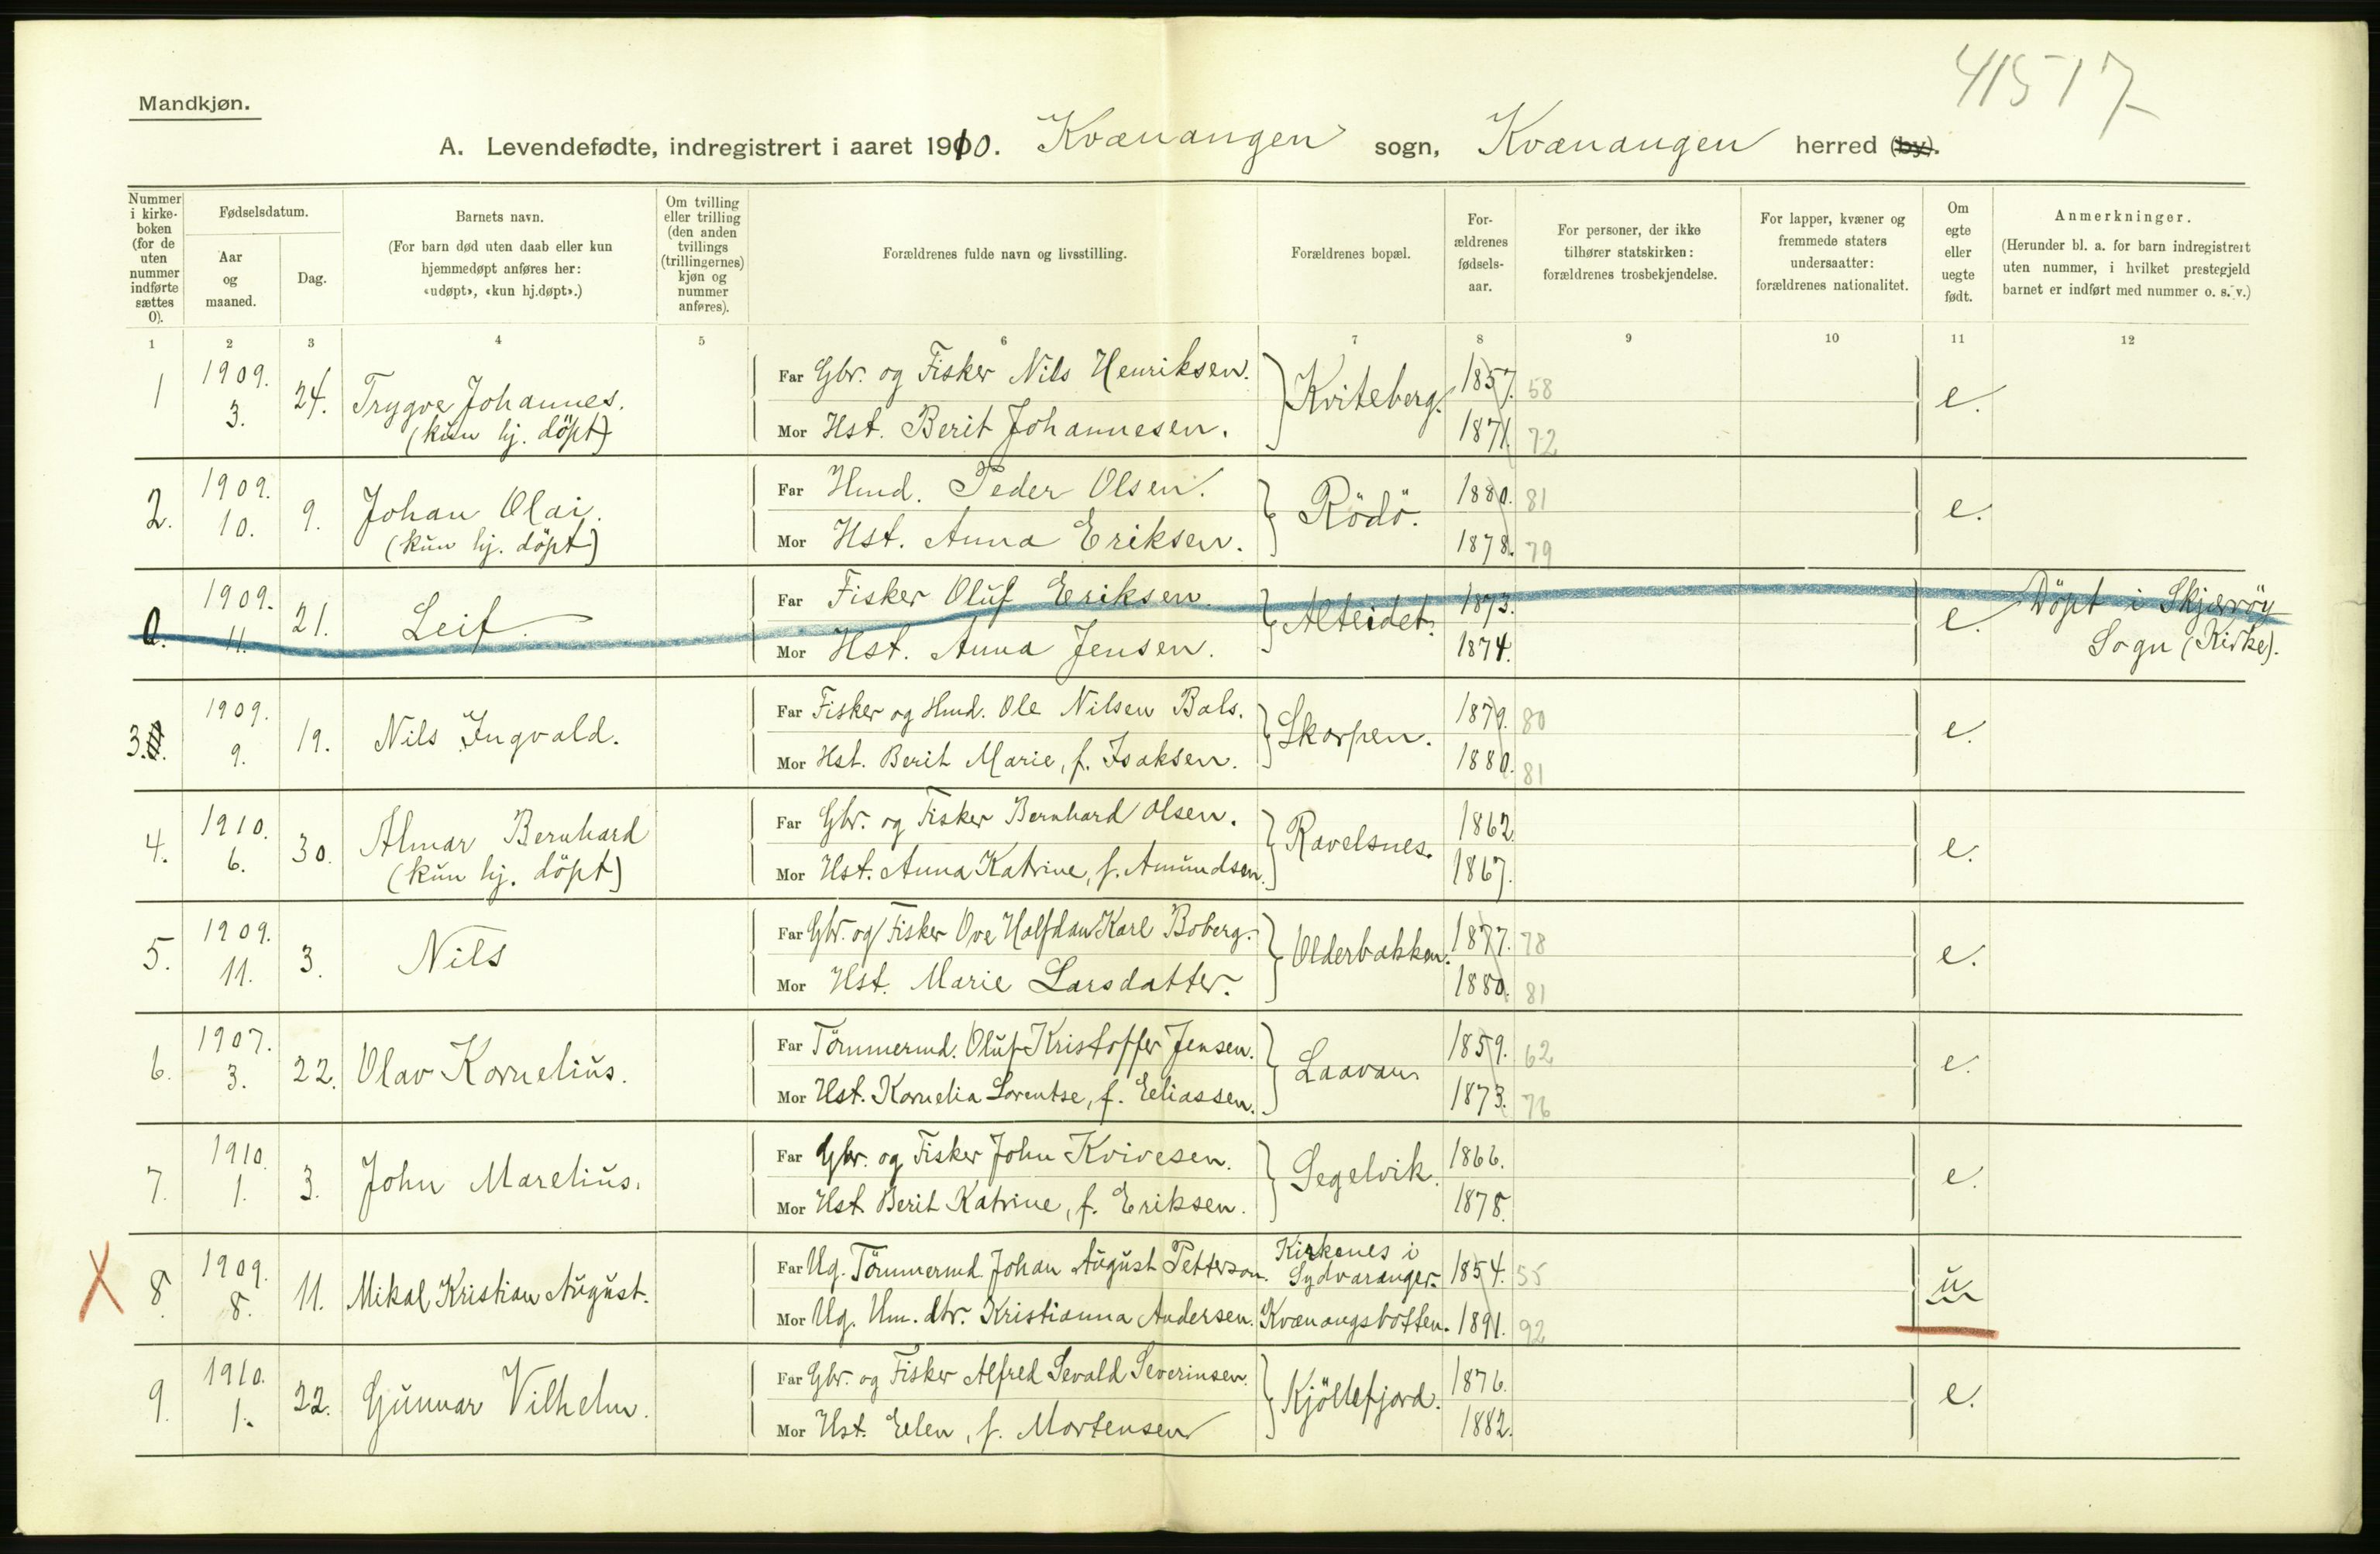 41517
Mandkjøn.
A. Levendefødte, indregistrert i aaret 1910. Kvænangen sogn, Kvænangen herred (by).
Nummer i kirke-boken (for de uten nummer indførte sættes 0).
Fødselsdatum.
Aar og maaned.
Dag.
Barnets navn.
(For barn død uten daab eller kun hjemmedøpt anføres her: «udøpt», «kun hj.døpt».)
Om tvilling eller trilling (den anden tvillings (trillingernes) kjøn og nummer anføres).
Forældrenes fulde navn og livsstilling.
Forældrenes bopæl.
For-ældrenes fødsels-aar.
For personer, der ikke tilhører statskirken: forældrenes trosbekjendelse.
For lapper, kvæner og fremmede staters undersaatter: forældrenes nationalitet.
Om egte eller uegte født.
Anmerkninger.
(Herunder bl. a. for barn indregistrert uten nummer, i hvilket prestegjeld barnet er indført med nummer o. s. v.)
1 2 3 4 5 6 7 8 9 10 11 12
1 1909. 3. 24. Trygve Johannes. (kun hj. döpt)
Far Gbr. og Fisker Nils Henriksen. Kviteberg. 1857. 58 e.
Mor Hst. Berit Johannesen. 1871. 72
2. 1909. 10. 9. Johan Olai. (kun hj. döpt)
Far Hmd. Peder Olsen. Rödö. 1880. 81 e.
Mor Hst. Anna Eriksen. 1878. 79
0. 1909. 11. 21. Leif.
Far Fisker Oluf Eriksen. Alteidet. 1873. e. Döpt i Skjærvöy
Mor Hst. Anna Jensen. 1874. Sogn (Kirke).
3. 1909. 9. 19. Nils Ingvald.
Far Fisker og Hmd. Ole Nilsen Bals. Skorpen. 1879. 80 e.
Mor Hst. Berit Marie, f. Isaksen. 1880. 81
4. 1910. 6. 30. Almar Bernhard (kun hj. döpt)
Far Gbr. og Fisker Bernhard Olsen. Ravelsnes. 1862. e.
Mor Hst. Anna Katrine, f. Amundsen. 1867.
5. 1909. 11. 3. Nils
Far Gbr. og Fisker Ove Halfdan Karl Boberg. Olderbakken. 1877. 78 e.
Mor Hst. Marie Larsdatter. 1880. 81
6. 1907. 3. 22. Olav Kornelius.
Far Tömmermd. Oluf Kristoffer Jensen. Laavan 1859. 62 e.
Mor Hst. Kornelia Lorentse, f. Eeliassen. 1873. 76
7. 1910. 1. 3. John Marelius.
Far Gbr. og Fisker John Kvivesen. Segelvik. 1866. e.
Mor Hst. Berit Katrine, f. Eriksen. 1878.
X 8. 1909. 8. 11. Mikal Kristian August.
Far Ug. Tömmermd. Johan August Petterson. Kirkenes i Sydvaranger. 1854. 55 u
Mor Ug. Hm. dtr. Kristianna Andersen. Kvænangsbotten. 1891. 92
9. 1910. 1. 22. Gunnar Vilhelm.
Far Gbr. og Fisker Alfred Sevald Severinsen. Kjöllefjord. 1876. e.
Mor Hst. Eelen, f. Mortensen 1882.